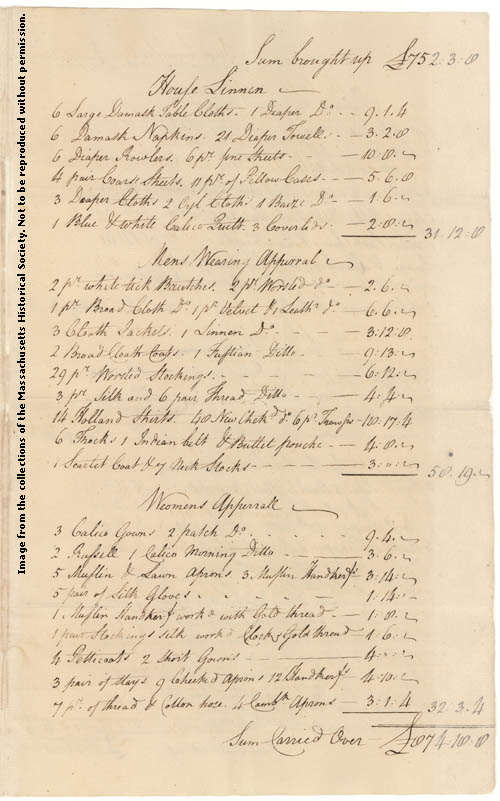 Image from the collections of the Massachusetts Historical Society. Not to be reproduced without permission.
Sum brought up £752.3.8
House Linnen
6 Large Damask Table Cloths. 1 Deaper Do. 9.1.4
6 Damask Napkins. 21 Deaper Towell. 3.2.8
6 Deaper Rowlers. 6 pr. fine Sheets 10.8.
4 pair Coarse Sheets. 11 pr. of Pillow Cases 5.6.8
3 Deaper Cloths 2 Oyl Cloth. 1 Baize Do 1.6.
1 Blue & White Calico Quilt. 3 Coverlids 2.8. 31.12.8
Mens Wearing Appurral
2 pr. white tick Breetches. 2 pr. Worsted do. 2.6.
1 pr. Broad Cloth Do. 1 pr. Velvet & 1 Leathr. do 6.6.
3 Cloath Jackets. 1 Linnen Do. 3.12.8
2 Broad Cloath Coats. 1 Fustian Ditto 9.13.
29 pr. Worsted Stockings. 6.12.
3 pr. Silk and 6 pair Thread Ditto 4.4.
14 Holland Shirts. 48 New Chekd. do. 6 pr. Trowsrs 18.17.4
6 Frocks 1 Indian belt & Bullet pouche 4.8.
1 Scarlet Coat & 7 Neck Stocks 3.. 58.19.
Weomens Appurrall
3 Calico Gowns 2 patch Do. 9.4.
2 Russell 1 Calico Morning Ditto 3.6.
5 Muslin & Lawn Aprons. 3 Muslin Handkerfs 3.14.
5 pair of Silk Gloves 1.14.
1 Muslin Handkerf. workd with Gold thread 1.8.
1 pair Stockings silk workd Clocks Gold thread 1.6.
4 Petticoats 2 Short Gowns 4..
3 pair of Stays 9 Checkd Aprons 12 Handkerfs 4.10.
7 pr. of thread & Cotton hose. 4 Cambk Aprons 3.1.4 32.3.4
Sum Carried Over £874.18.8